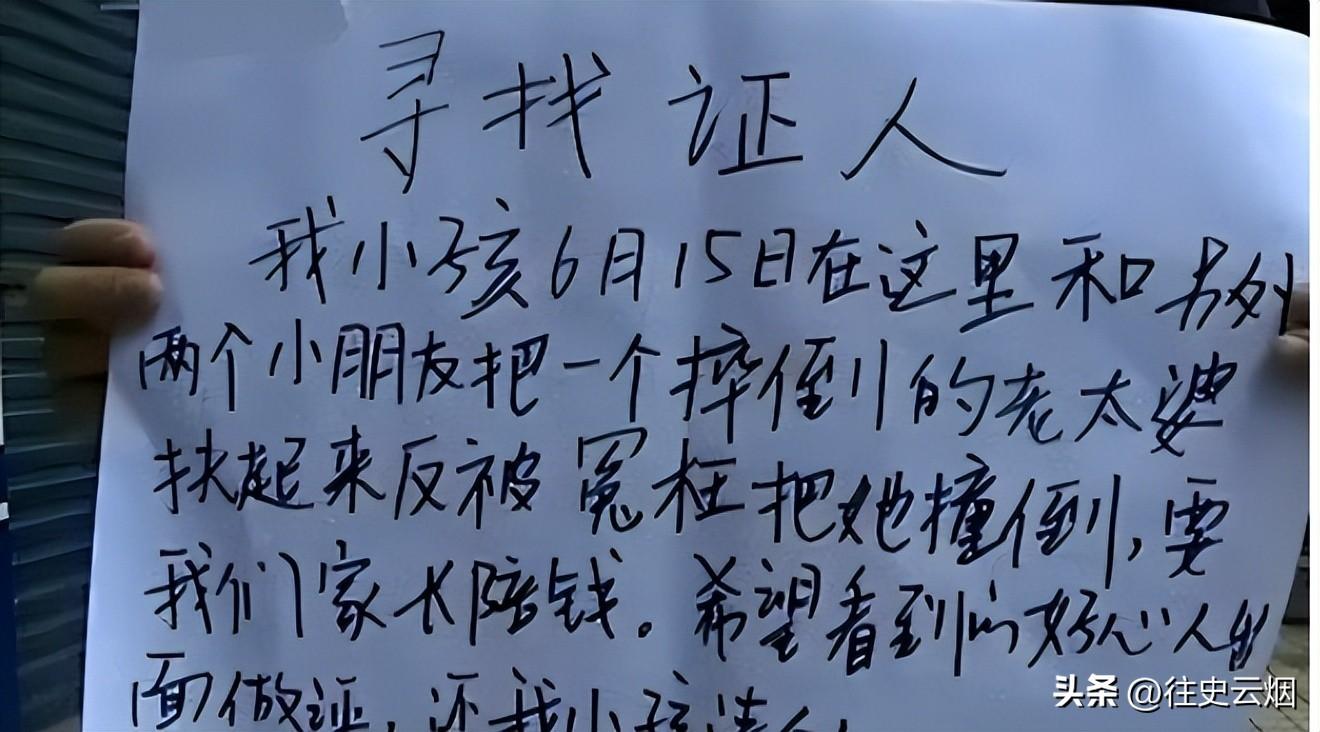 寻找证人
我小孩6月15日在这里和另外
两个小朋友把一个摔倒的老太婆
扶起来反被冤枉把她撞倒,要
我们家长陪钱。希望看到的好心人出
面做证,还我小孩清
头条 @往史云烟